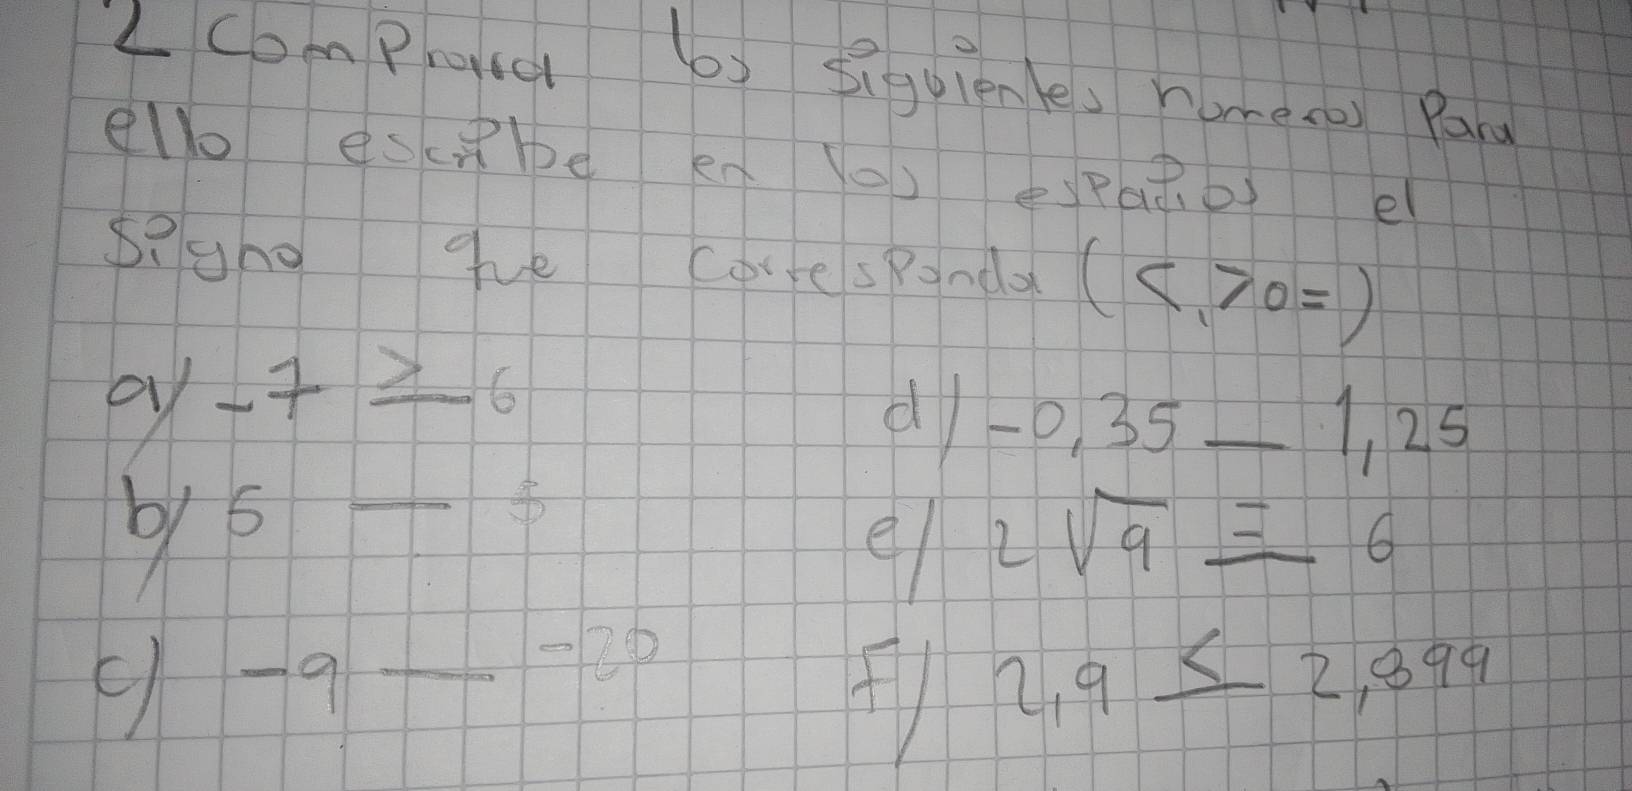 2 Comprova los siguientes numeros Para
ello escribe en los espacios el
signo que corresponda (<, > o =)
a) -7 > 6
d) -0,35 __ 1,25
b) 5 __ 5
e) 2√9 = 6
c) -9 __ -20
F) 2,9 < 2,899